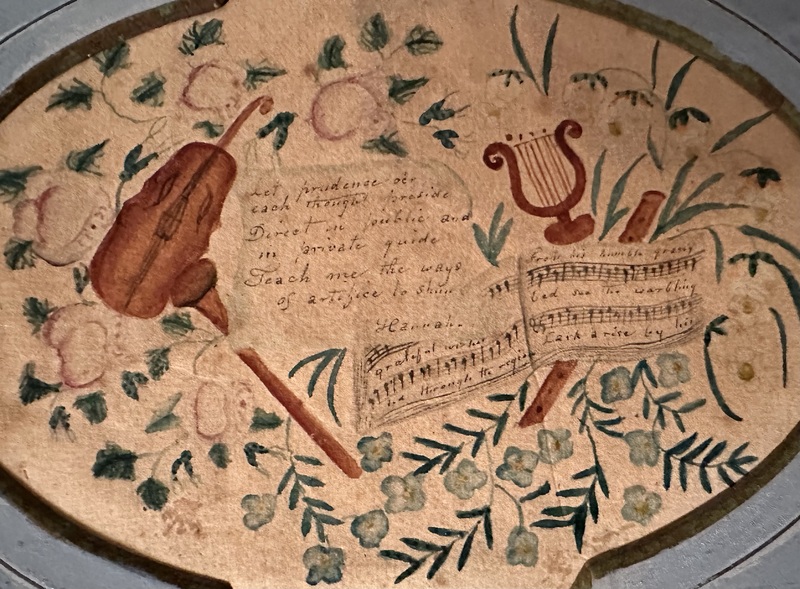 Let prudence o'er
each thought preside
Direct in public and
in private guide
Teach me the ways
of artifice to shun.
Hannah.
From his humble grassy
bed see the warbling
Lark arise by his
grateful wishes
led through the regions